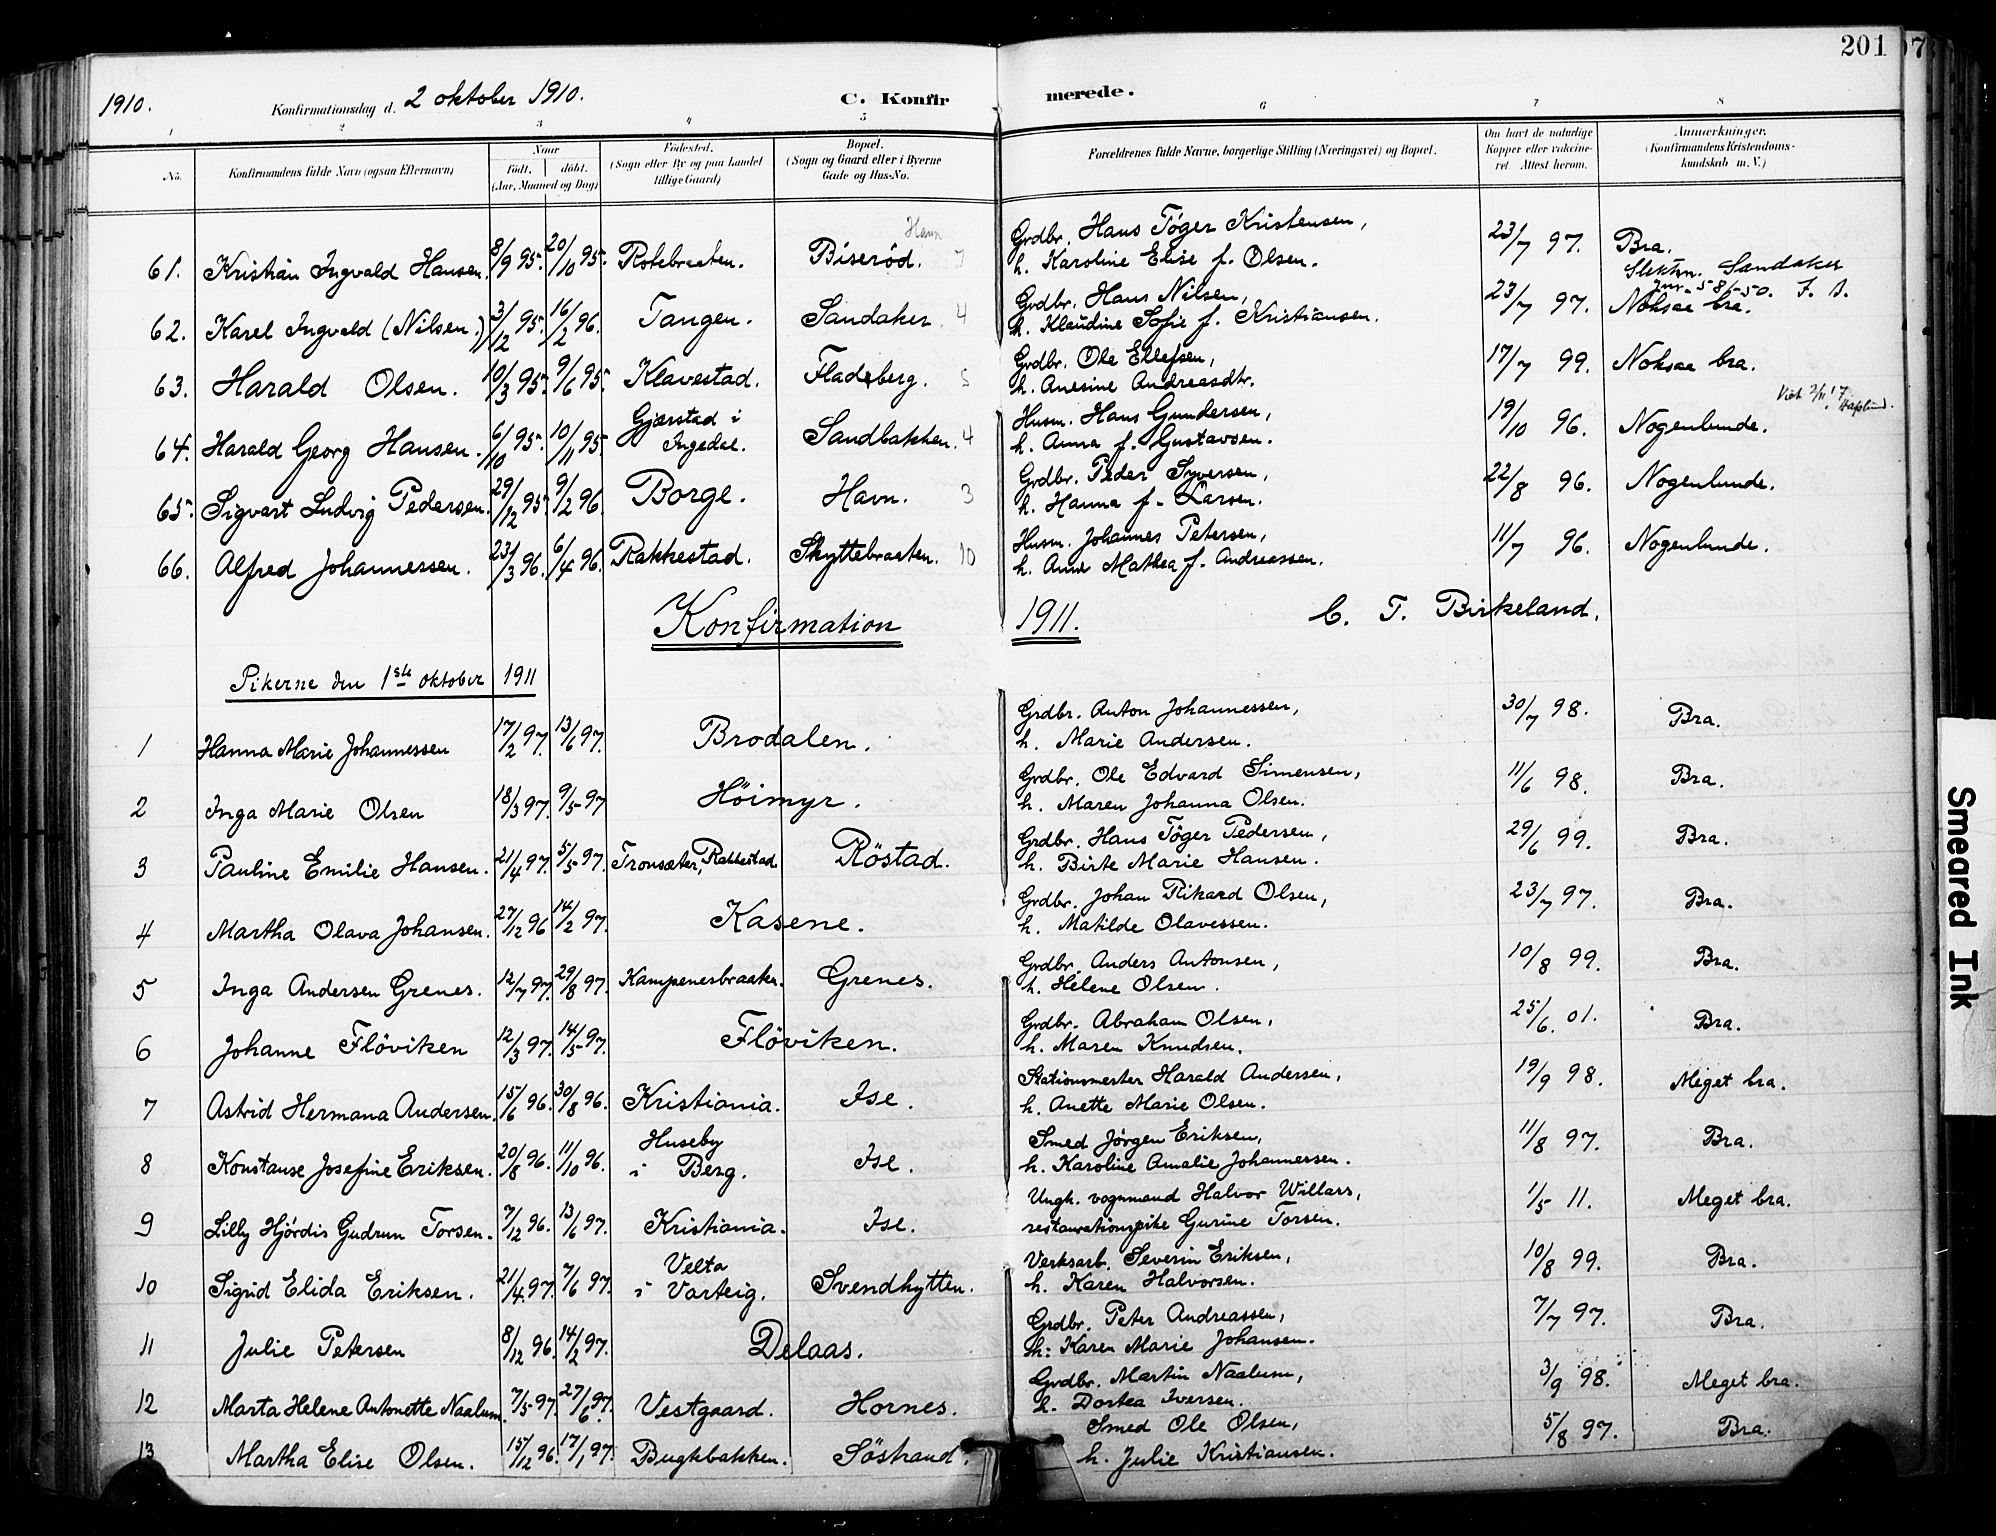 201
1910. Konfirmationsdag d. 2 oktober 1910. C. Konfirmerede.
1 2 3 4 5 6 7 8
No. Konfirmandens fulde Navn (ogsaa Efternavn) Naar født. døbt. (Aar, Maaned og Dag) Fødested. (Sogn eller By og paa Landet tillige Gaard) Bopæl. (Sogn og Gaard eller i Byerne Gade og Hus-No. Forældrenes fulde Navne, borgerlige Stilling (Næringsvei) og Bopæl. Om havt de naturlige Kopper eller vakcineret. Attest herom. Anmærkninger. (Konfirmandens Kristendomskundskab m. V.)
Havn
61. Kristian Ingvald Hansen. 8/9 95. 20/10 95. Rotebraaten. Biserød. 7 Grdbr. Hans Tøger Kristensen, 23/7 97. Bra.
h. Karoline Elise f. Olsen.
Slektsn. Sandaker
Jnr. 581-50.
62. Karel Ingvald (Nilsen.) 3/12 95. 16/2 96. Tangen. Sandaker. 4 Grdbr. Hans Nilsen, 23/7 97. Noksaa bra.
h. Klaudine Sofie f. Kristiansen.
63. Harald Olsen. 10/3 95. 9/6 95. Klavestad. Fladeberg. 5 Grdbr. Ole Ellefsen, 17/7 99. Noksaa bra.
h. Anesine Andreasdtr.
Viet 2/11 17 Hafslund.
64. Harald Georg Hansen. 6/10 95. 10/11 95. Gjærstad i Ingedal. Sandbakken. 4 Husm. Hans Gundersen, 19/10 96. Nogenlunde.
h. Anna f. Gustavsen.
65. Sigvart Ludvig Pedersen. 29/12 95. 9/2 96. Borge. Havn. 3 Grdbr. Peder Syversen, 22/8 96. Nogenlunde.
h. Hanna f. Larsen.
66. Alfred Johannessen. 23/3 96. 6/4 96. Rakkestad. Skyttebraaten. 10 Husm. Johannes Petersen, 11/7 96. Nogenlunde.
h. Anne Mathea f. Andreassen.
Konfirmation 1911. C. T. Birkeland.
Pikerne den 1ste oktober 1911
1 Hanna Marie Johannessen 17/2 97. 13/6 97. Brodalen. Grdbr. Anton Johannessen, 30/7 98. Bra.
h. Marie Andersen.
2 Inga Marie Olsen 18/3 97. 9/5 97 Höimyr. Grdbr. Ole Edvard Simensen, 11/6 98. Bra.
h. Maren Johanna Olsen.
3 Pauline Emilie Hansen. 21/4 97. 5/5 97. Tronsæter, Rakkestad Röstad. Grdbr. Hans Töger Pedersen, 29/6 99. Bra.
h. Birte Marie Hansen.
4 Martha Olava Johansen. 27/12 96 14/2 97. Kasene. Grdbr. Johan Rikard Olsen, 23/7 97. Bra.
h. Matilde Olavessen.
5 Inga Andersen Grenes. 12/7 97. 29/8 97. Kampenesbraaten. Grenes. Grdbr. Anders Antonsen, 10/8 99. Bra.
h. Helene Olsen.
6 Johanne Flöviken 12/3 97. 14/5 97. Flöviken. Grdbr. Abraham Olsen, 25/6. 01. Bra.
h. Maren Knudsen.
7 Astrid Hermana Andersen. 15/6 96. 30/8 96. Kristiania. Ise. Stationsmester Harald Andersen, 19/9 98. Meget bra.
h. Anette Marie Olsen.
8 Konstanse Josefine Eriksen. 20/8 96. 11/10 96. Huseby i Berg. Ise. Smed Jörgen Eriksen, 11/8 97. Bra.
h. Karoline Amalie Johannessen.
9 Lilly Hjördis Gudrun Torsen. 7/12 96. 13/6 97. Kristiania. Ise. Ungk. vognmand Halvor Willars, 1/5 11. Meget bra.
restaurationspike Gurine Torsen.
10 Sigrid Elida Eriksen. 21/4. 97. 7/6 97. Velta i Varteig. Svendhytten. Verksarb. Severin Eriksen, 10/8 99. Bra.
h. Karen Halvorsen.
11 Julie Petersen 8/12 96. 14/2 97. Delaas. Grdbr. Peter Andreassen, 7/7 97. Bra.
h: Karen Marie Johansen.
12 Marta Helene Antonette Naalum. 7/5 97. 27/6 97. Vestgaard. Hornes. Grdbr. Martin Naalum, 3/9 98. Meget bra.
h. Dortea Iversen.
13 Martha Elise Olsen. 15/12 96. 17/1 97. Bugkbakken. Söstrand. Smed Ole Olsen, 5/8 97. Bra.
h. Julie Kristiansen.
Smeared Ink